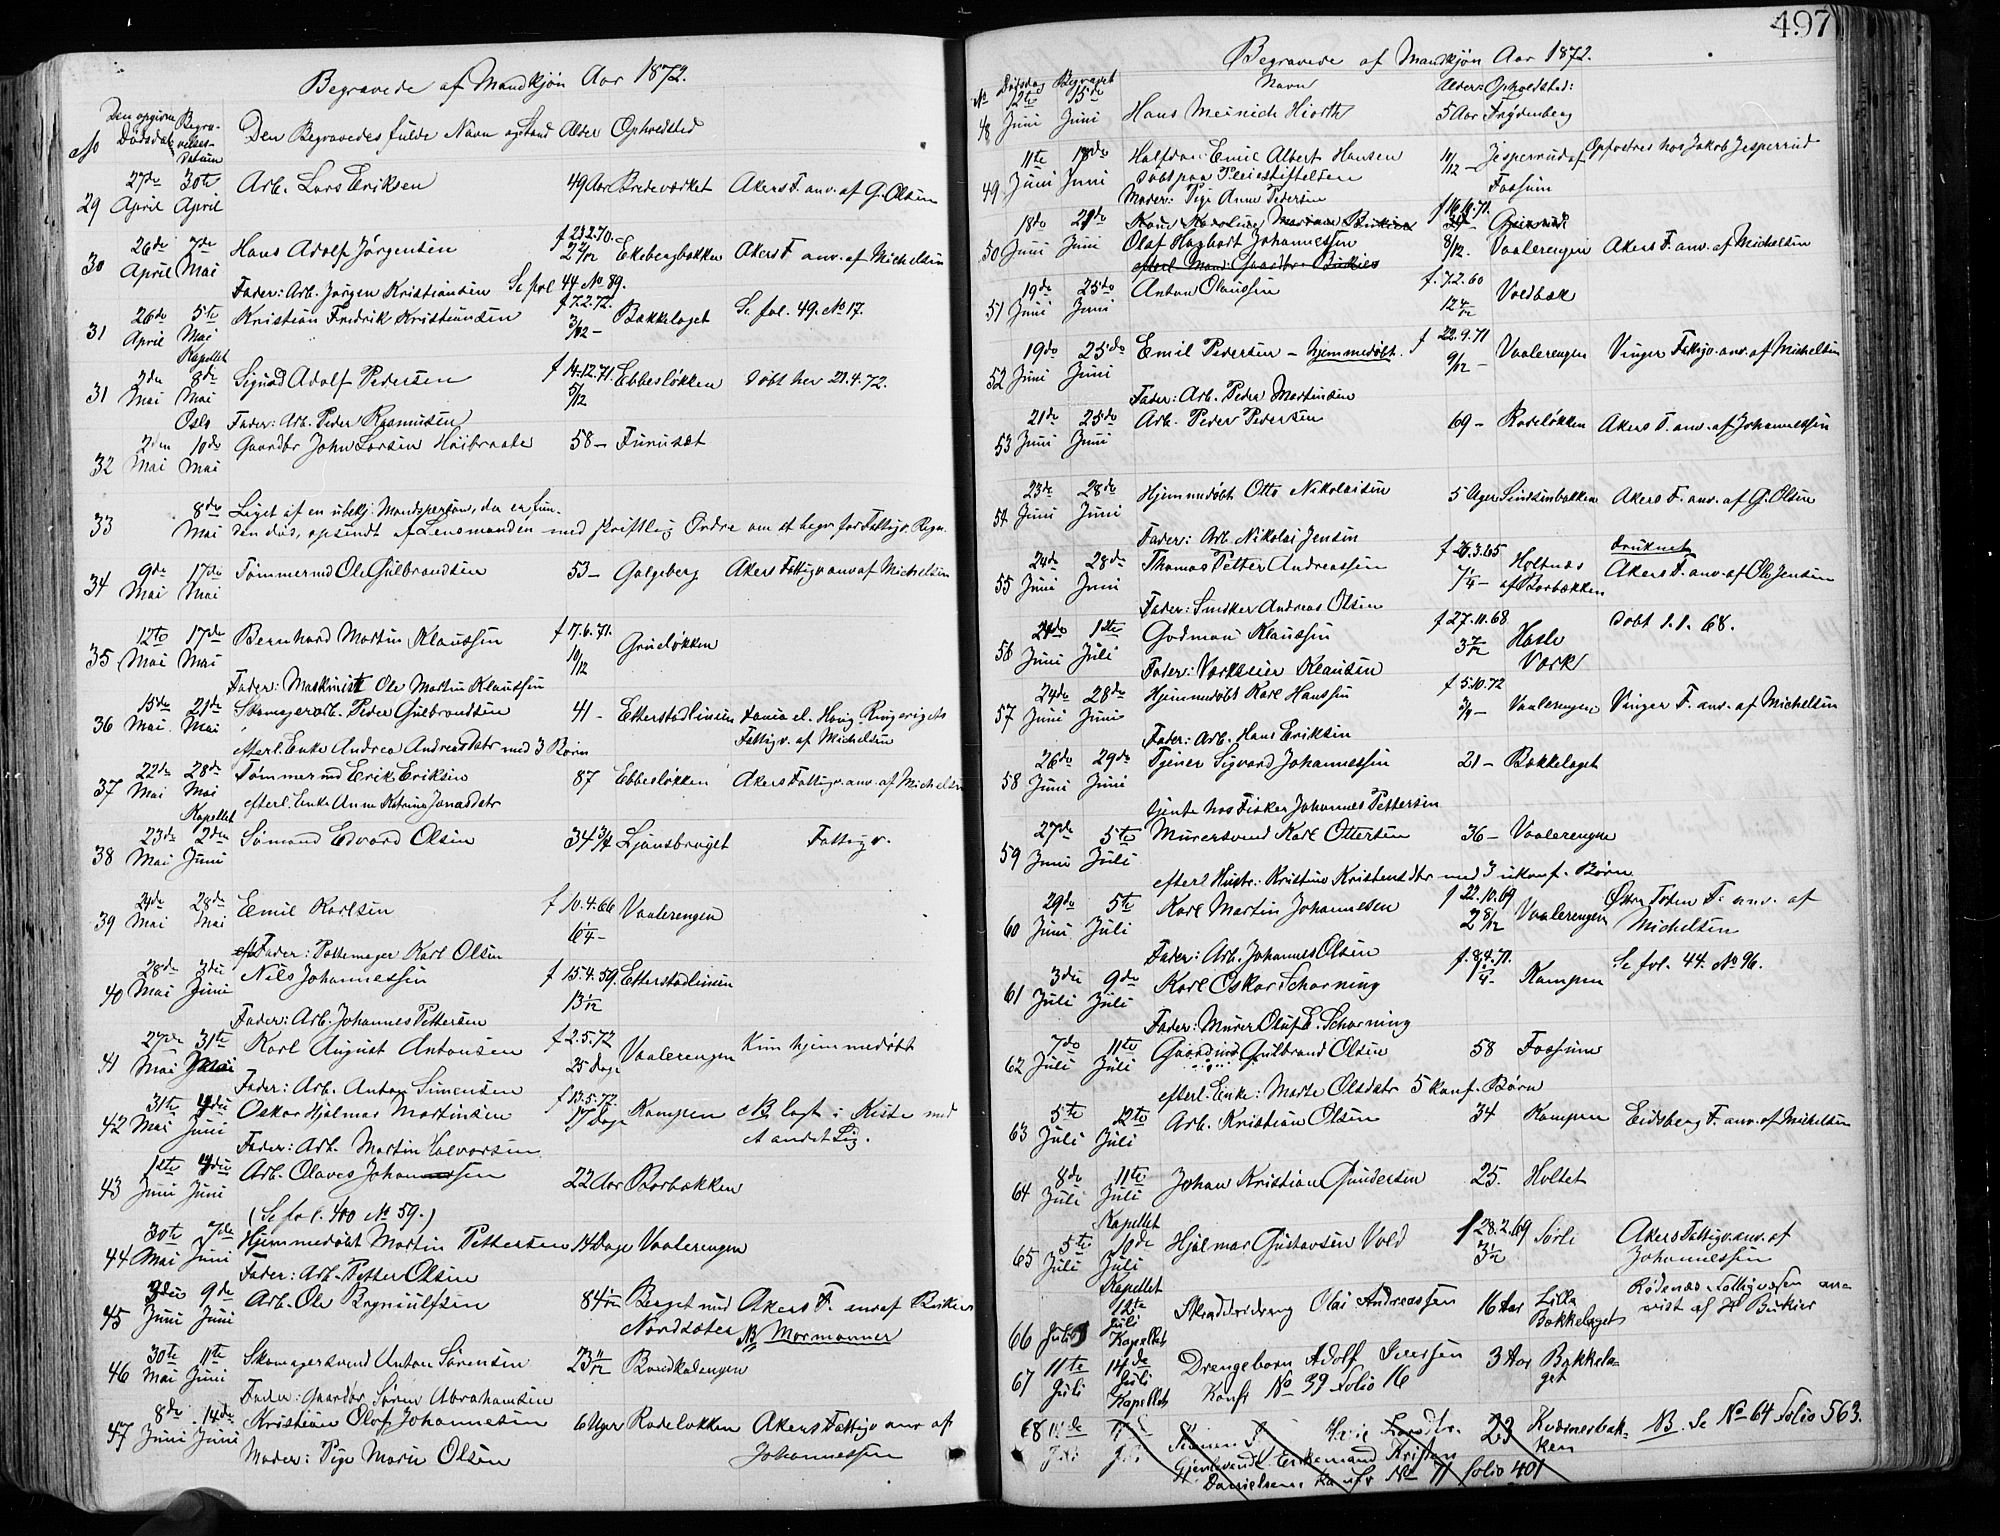 Begravede af Mandkjøn Aar 1872.
No Den opgivne Dødsdat. Begravelses-Datum Den Begravedes fulde Navn og Stand Alder Opholdsted
29 27de April 30te April Arb. Lars Eriksen 49 Aar Bredeværket Akers F. anv. af G. Olsen
30 26de April 7de Mai Hans Adolf Jørgensen f 23.2.70. 2 2/12 Ekebergbakken Akers F. anv. af Michelsen
Fader: Arb. Jørgen Kristiansen Se fol 44 No 89.
31 26de April 5te Mai Kapellet Kristian Fredrik Kristiansen f 7.2.72. 3/12 – Bækkelaget Se fol. 49. No 17.
31 2den Mai 8de Mai Oslo Sigvad Adolf Pedersen f 14.12.71. 5/12 Ebbesløkken døbt her 21.4.72.
Fader: Arb. Peder Rasmussen
32 2den Mai 10de Mai Gaardbr John Larsen Høibraate 58 – Furuset
33 8de Mai Liget af en ubekj. Mandsperson, der er fun-
den død, opsendt af Lensmanden med skriftlig Ordre om at begr. for Fattigv. Regn.
34 9de Mai 17de Mai Tømmermd Ole Gulbrandsen 53 – Galgeberg Akers Fattigv anv af Michelsen
35 12te Mai 17de Mai Bernhard Martin Klaussen f 17.6.71. 10/12 Grueløkken
Fader: Maskinist Ole Martin Klaussen
36 15de Mai 21de Mai Skomagerarb. Peder Gulbrandsen 41 – Etterstadlinien Ringeriges
Fattigv. af Michelsen
efterl. Enke Andrea Andreasdatr med 3 Børn
37 22de Mai 28de Mai Kapellet Tømmermd Erik Eriksen 87 Ebbesløkken Akers Fattigv. anv. af Michelsen
efterl. Enke Anne Katrina Jonasdatr
38 23de Mai 2den Juni Sømand Edvard Olsen 34 3/4 Ljansbruget Fattigv.
39 24de Mai 28de Mai Emil Karlsen f 10.4.66 6 1/4 – Vaalerengen
Fader: Pottemager Karl Olsen
40 28de Mai 3die Juni Nils Johannessen f 15.4.59. 13 1/12 Etterstadlinien
Fader: Arb. Johannes Pettersen
41 27de Mai 31te Mai Karl August Antonsen f 2.5.72 25 Dage Vaalerengen Kun hjemmedøbt
Fader: Arb. Anton Simensen
42 31te Mai 4die Juni Oskar Hjalmar Martinsen f 13.5.72. 17 Dage Kampen NB lagt i Kiste med
et andet Lig.
Fader: Arb. Martin Halvorsen
43 1ste Juni 4die Juni Arb. Olaves Johansen 22 Aar Barbakken
(Se fol. 400 No 59.)
44 30te Mai 7de Juni Hjemmedøbt Martin Pettersen 14 Dage Vaalerengen
Fader: Arb. Petter Olsen
45 3die Juni 9de Juni Arb. Ole Brynuulfsen 84 Berget med Nordsæter Akers F. anv af
NB Mormonner
46 30te Mai 11te Juni Skomagersvend Anton Sørensen 23 11/12 Bondkadengen
Fader: Gaardbr Søren Abrahamsen
47 8de Juni 14de Juni Kristian Olaf Johannesen 6 Uger Rodeløkken Akers Fattigv anv af
Johannessen
Moder: Pige Marie Olsen
497
Begravede af Mandkjøn Aar 1872.
No Dødsdag Begravet Navn Alder: Opholdsted:
48 12te Juni 15de Juni Hans Meinich Hiorth 5 Aar Frydenberg
49 11te Juni 18de Juni Halfdan Emil Albert Hansen 10/12 – Jesperrud af Fossum Opfostret hos Jakob Jesperrud
døbt paa Pleiestiftelsen
Moder: Pige Anne Pedersen
50 18de Juni 21de Juni Olaf Hagbart Johannessen f 16.11.71. 8/12. Vaalerengen Akers F. anv. af Michelsen
51 19de Juni 25de Juni Anton Olaussen f. 7.2.60 12 4/12 Voldbæk
52 19de Juni 25de Juni Emil Pedersen – hjemmedøbt. f 22.9.71 9/12 – Vaalerengen Vinger Fattigv. anv. af Michelsen
Fader: Arb. Peder Martinsen
53 21de Juni 25de Juni Arb. Peder Pedersen 69 – Rodeløkken Akers F. anv. af Johannessen
54 23de Juni 28de Juni Hjemmedøbt Otto Nikolaisen 5 Uger Sinsenbakken Akers F. anv. af G. Olsen
Fader: Arb. Nikolai Jensen
55 24de Juni 28de Juni Thomas Petter Andreassen f 26.3.65 7 1/4 – Holtnæs af Barbakken druknet
Akers F. anv. af Ole Jensen
Fader: Snedker Andreas Olsen
56 24de Juni 1ste Juli Godman Klaussen f 27.11.68 3 7/12 Hasle Værk døbt 1.1.68.
Fader: Værkseier Klausen
57 24de Juni 28de Juni Hjemmedøbt Karl Hanssen f 5.10.72 3/4 – Vaalerengen Vinger F. anv. af Michelsen
Fader: Arb. Hans Eriksen
58 26de Juni 29de Juni Tjener Sigvard Johannessen 21 – Bækkelaget
tjente hos Fisker Johannes Pettersen
59 27de Juni 5te Juli Murersvend Karl Ottersen 36 – Vaalerengen
efterl. Hustr: Kristine Kristensdtr med 3 ukonf. Børn
60 29de Juni 5te Juli Karl Martin Johannesen f 22.10.69 2 8/12 Vaalerengen Østre Toten F. anv. af
Michelsen
Fader: Arb. Johannes Olsen
61 3die Juli 9de Juli Karl Oskar Scharning f. 8.4.71. 1 1/4 – Kampen Se fol. 44. No 96.
Fader: Murer Oluf E. Scharning
62 7de Juli 11te Juli Gaardmd Gulbrand Olsen 58 Fossum
efterl. Enke: Marte Olsdatr 5 konf. Børn
63 5te Juli 12te Juli Arb. Kristian Olsen 34 Kampen Eidsberg F. anv. af Michelsen
64 8de Juli 11te Juli Kapellet Johan Kristian Gundersen 25. Holtet
65 5te Juli 10de Juli Kapellet Hjalmar Gustavsen Vold f 28.2.69 3 Sørli Akers Fattigv. anv. af
Johannessen
66 Juli 12te Juli Kapellet Olai Andreassen 16 Aar Lilla Bækkelaget Rødenæs Fattigvæsen an-
vist af Hr Birkier
67 11te Juli 14de Juli Kapellet Drengebarn Adolf Iversen 3 Aar Bækkela-
get
Konf. No 39 Folio 16
68 23 Kværnerbak-
ken NB. Se No 64 Folio 563.
Gjenlevende Enkemand Kristen
Danielsen. No 11 folio 401